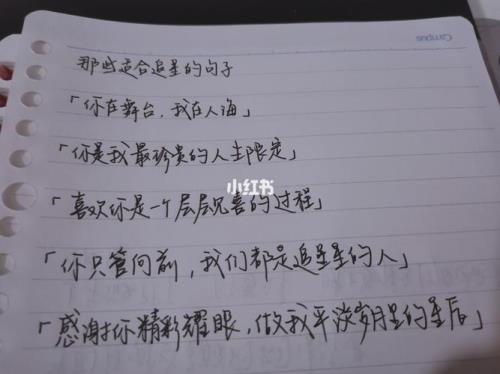 Campus
那些适合追星的句子
「你在舞台，我在人海」
「你是我最珍贵的人生限定」
小红书
「喜欢你是一个层层兑喜的过程」
「你只管向前，我们都是追星星的人」
「感谢你精彩耀眼，做我平淡岁月里的星辰」